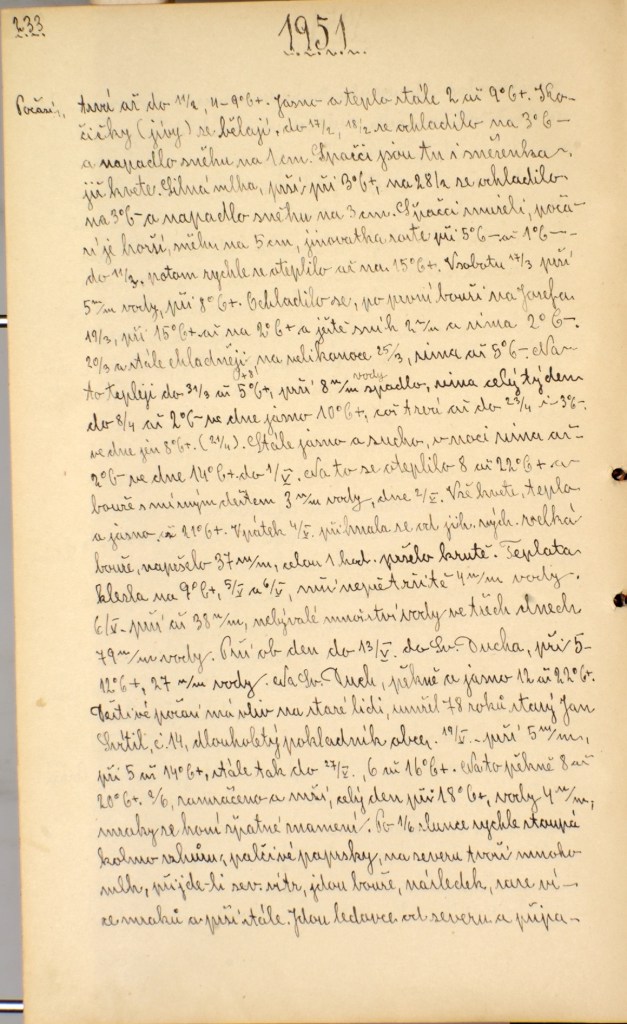 233
1951
Počasí, trvá až do 11/2, 4-9°C+. Jasno a teplo stále 2 až 9°C+. Ko-
čičky (jívy) se bělají, do 17/2, 18/2 se ochladilo na 3°C-
a napadlo sněhu na 1 cm. Špačci jsou tu i sněženka
již kvete. Silná mlha, prší při 3°C+, na 28/2 se ochladilo
na 3°C- a napadlo sněhu na 3 cm. Špačci zmizeli, počá-
sí je horší, sněhu na 5 cm, jinovatka roste při 5°C- až 1°C-
do 11/3, potom rychle se oteplilo až na 15°C+. V sobotu 17/3 prší
5 m/m vody, při 8°C+. Ochladilo se, po první bouři na Josefa
19/3, při 15°C+ až na 2°C+ a ještě sníh 2 m/m a zima 2°C-.
20/3 a stále chladněji na velikonoce 25/3, zima až 5°C-. Na
to tepleji do 31/3 až 5°C+, prší 8 m/m vody spadlo, zima celý týden
do 8/4 až 2°C- ve dne jasno 10°C+, což trvá až do 23/4 i -3°C-
ve dne jen 8°C+. (24/4). Stále jasno a sucho, v noci zima až
2°C- ve dne 14°C+ do 1/V. Na to se oteplilo 8 až 22°C+ a
bouře s mírným deštem 3 m/m vody, dne 2/V. Vše kvete, teplo
a jasno až 21°C+. V pátek 4/V. přihnala se od jih. vých. velká
bouře, napršelo 37 m/m, celou 1 hod. pršelo krutě. Teplota
klesla na 9°C+, 5/V a 6/V, mží nepřetržitě 4 m/m vody.
6/V - prší až 38 m/m, nebývalé množství vody ve třech dnech
79 m/m vody. Prší ob den do 13/V. do Sv. Ducha, při 5-
12°C+, 27 m/m vody. Na Sv. Duch, pěkně a jasno 12 až 22°C+.
Deštivé počasí má vliv na staré lidi, umřel 78 roků starý Jan
č. 14, dlouholetý pokladník obce. 19/V - prší 5 m/m,
při 5 až 14°C+, stále tak do 27/V., 6 až 16°C+. Na to pěkně 8 až
20°C+. 2/6, zamračeno a mží, celý den při 18°C+, vody 4 m/m,
mraky se honí špatné znamení. Po 1/6 slunce rychle stoupá
kolmo vzhůru, palčivé paprsky, na severu tvoří mnoho
mlh, přijde-li sev. vítr, jdou bouře, následek, zase ví-
ce mraků a prší stále. Jdou ledovce od severu a připa-